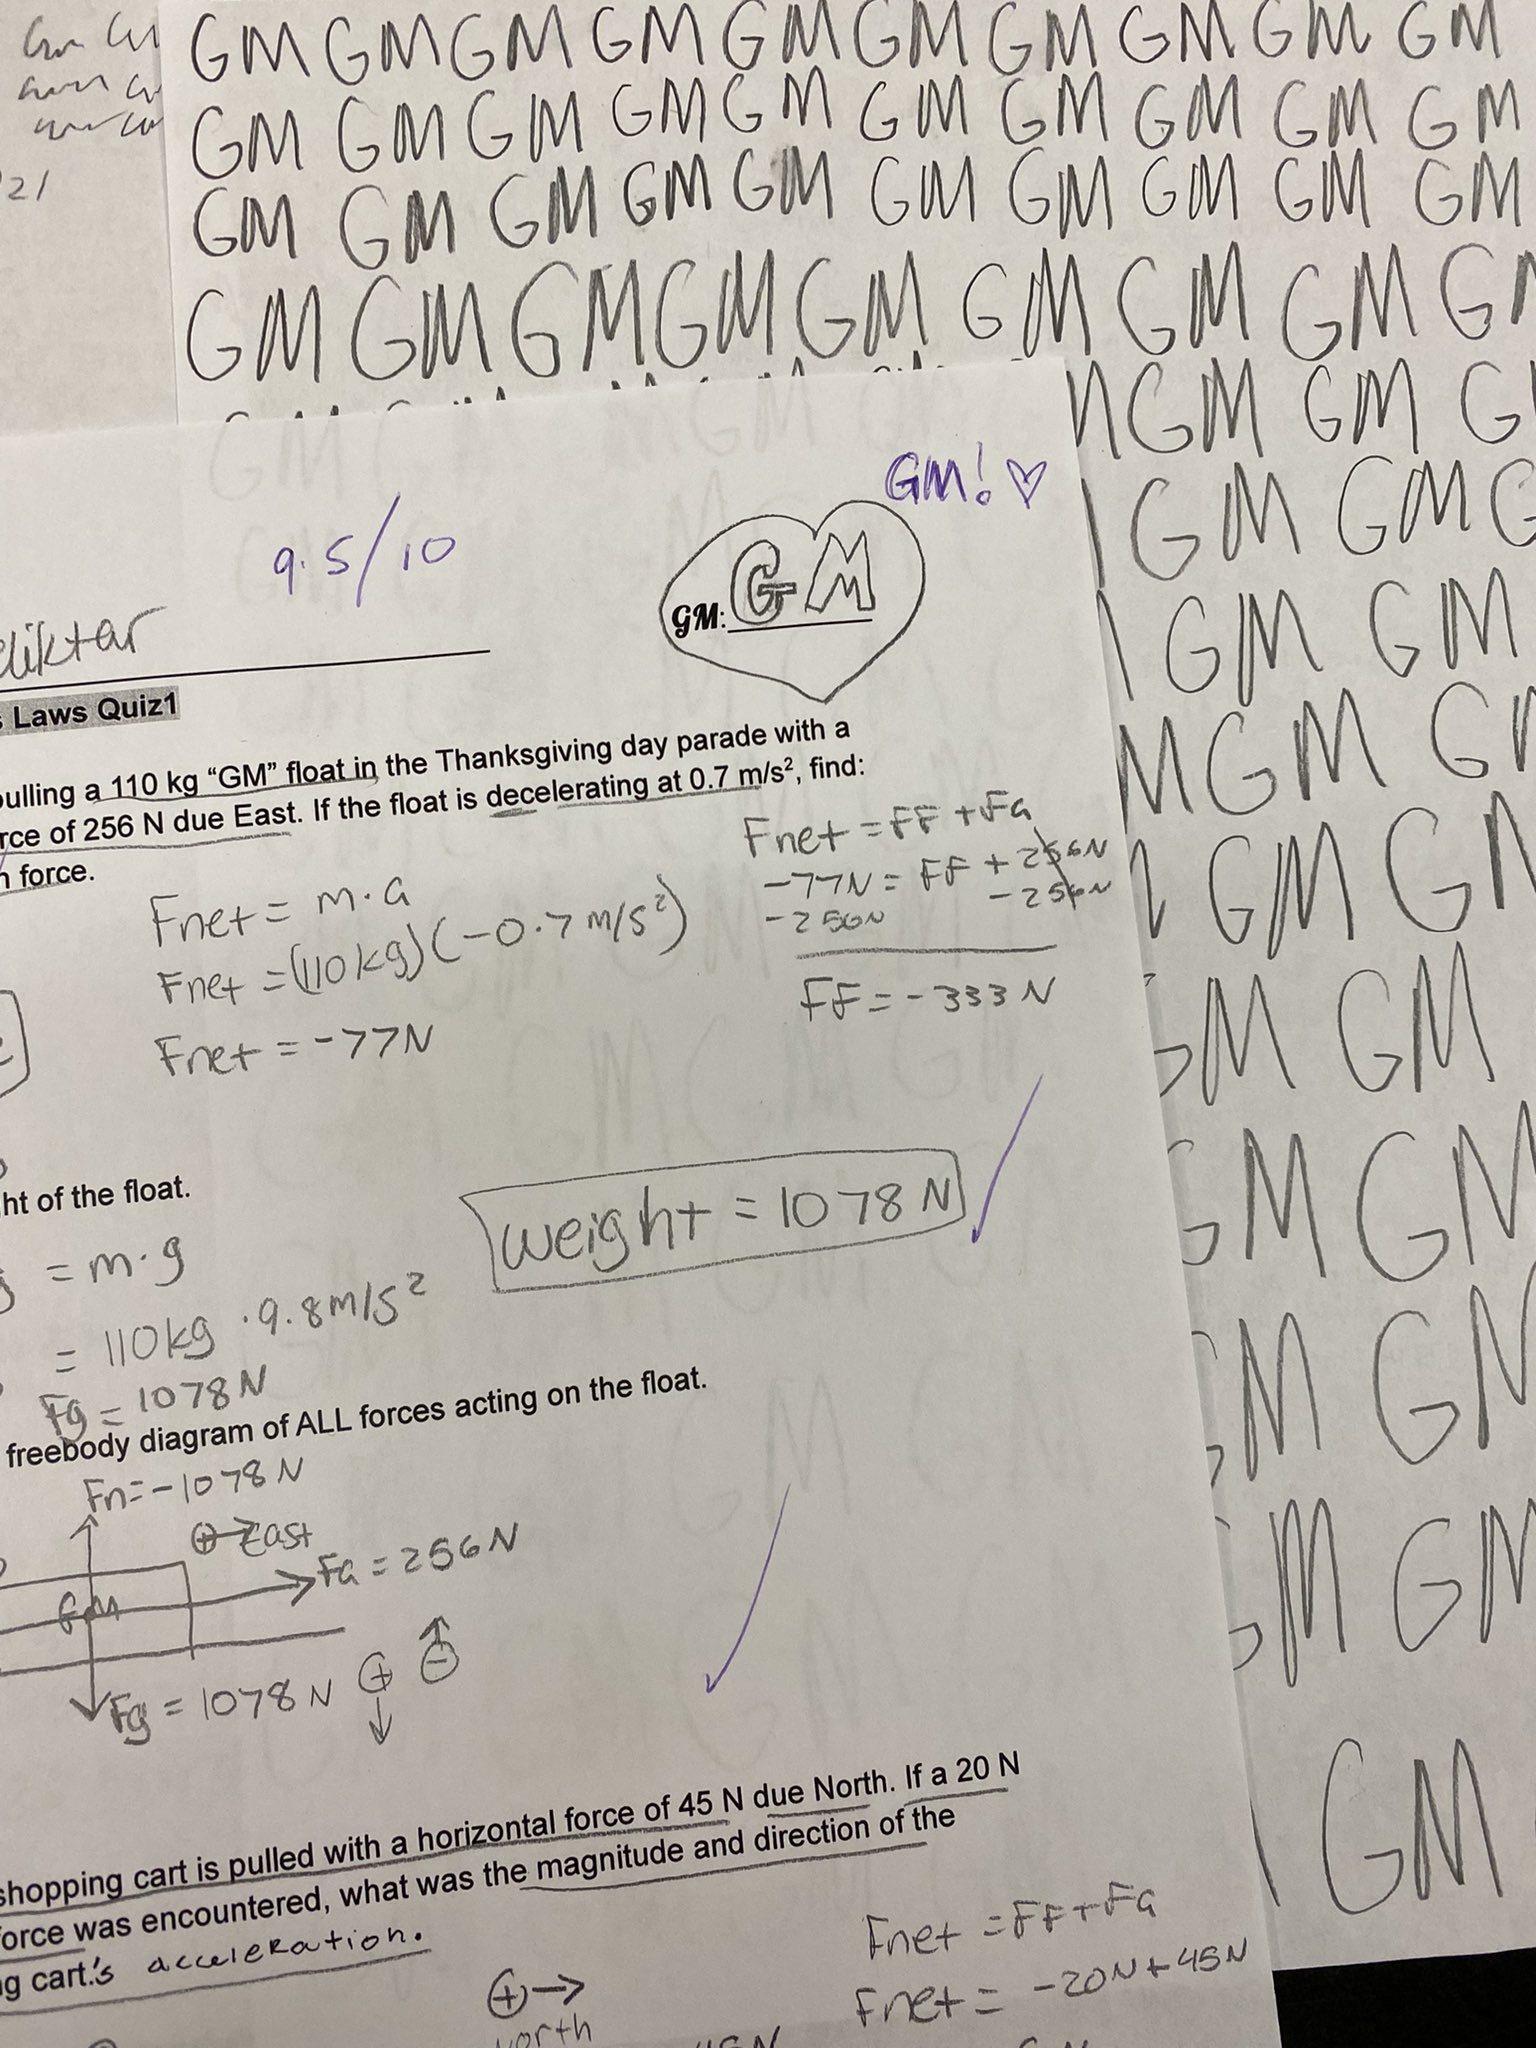 21
GM GM GM GM GM GM GM GM GM GM
GM GM GM GM GM GM GM GM GM GM
GM GM GM GM GM GM GM GM GM GM
GM GM GM GM GM GM GM GM
GM GM
GM GM
GM GM
GM
GM GM
GM GM
GM GM
GM GM
GM GM
GM
GM! ♡
9.5/10
GM: GM
Laws Quiz1
pulling a 110 kg “GM” float in the Thanksgiving day parade with a
rce of 256 N due East. If the float is decelerating at 0.7 m/s², find:
force.
Fnet = m·a
Fnet = (110kg)(-0.7m/s²)
Fnet = -77N
Fnet = FF + Fa
-77N = FF + 256N
-256N -256N
FF = -333N
ht of the float.
weight = 1078 N
= m·g
= 110kg · 9.8m/s²
Fg = 1078N
freebody diagram of ALL forces acting on the float.
Fn = -1078N
+ → East
Fa = 256N
GM
Fg = 1078N + ↓ - ↑
shopping cart is pulled with a horizontal force of 45 N due North. If a 20 N
orce was encountered, what was the magnitude and direction of the
g cart.'s acceleration.
+ →
north
Fnet = FF + Fa
Fnet = -20N + 45N